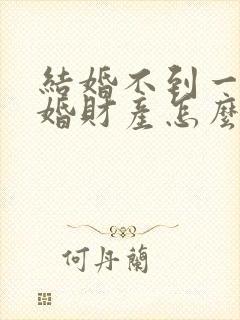 結婚不到一
婚財產怎麼
何丹蘭